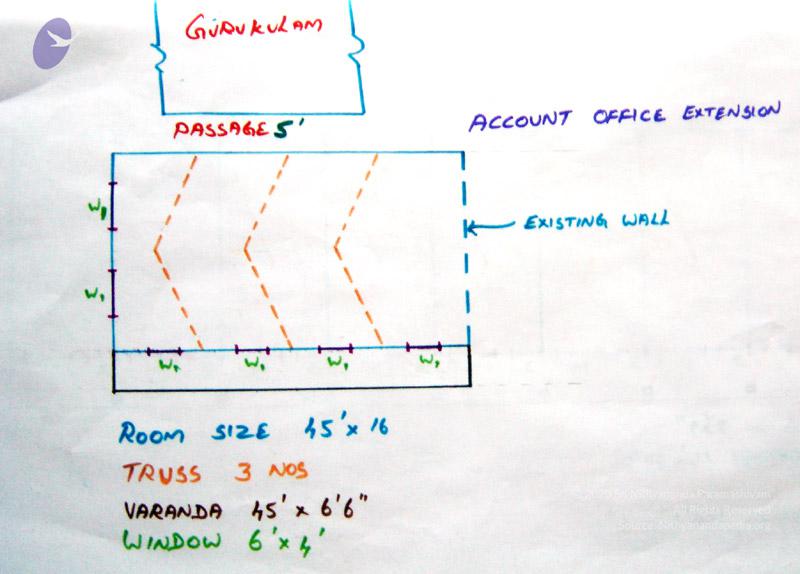 GURUKULAM
PASSAGE 5'
ACCOUNT OFFICE EXTENSION
W1
EXISTING WALL
W1
W1 W1 W1 W1
ROOM SIZE 45' x 16
TRUSS 3 NOS
VARANDA 45' x 6'6"
WINDOW 6' x 4'
© 2020 Sri Nithyananda Paramashivam
All Rights Reserved
Source: Nithyanandapedia.org